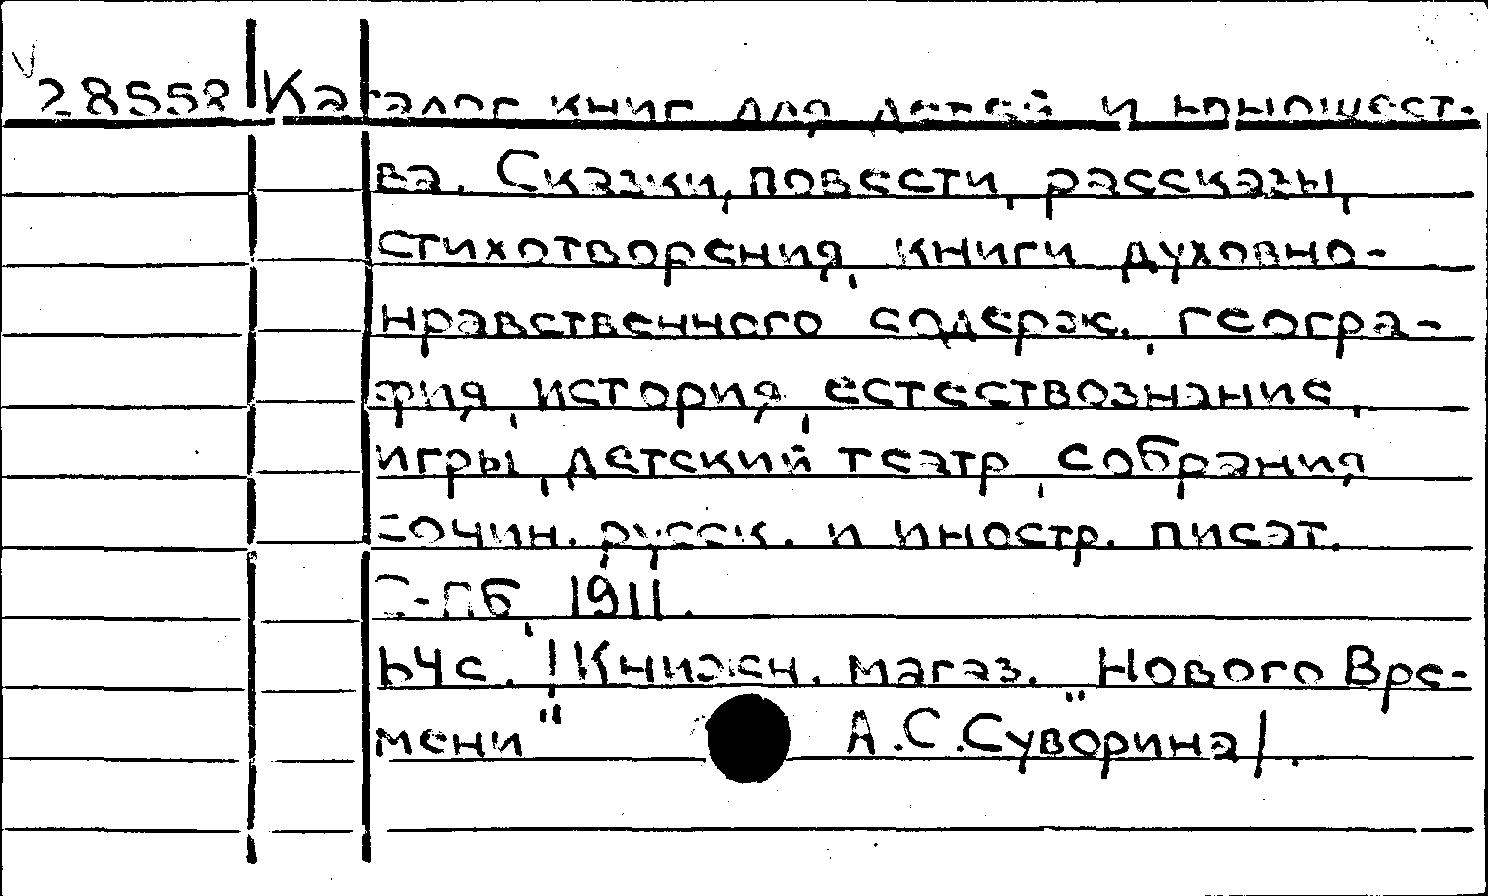 28558 Каталог книг для детей и юношест-
ва. Сказки, повести, рассказы,
стихотворения, книги духовно-
нравственного содерж., геогра-
фия, история, естествознание,
игры, детский театр, собрания
сочин. русск. и иностр. писат.
С-Пб, 1911.
64с. /Книжн. магаз. „Нового Вре-
мени" А.С.Суворина/.